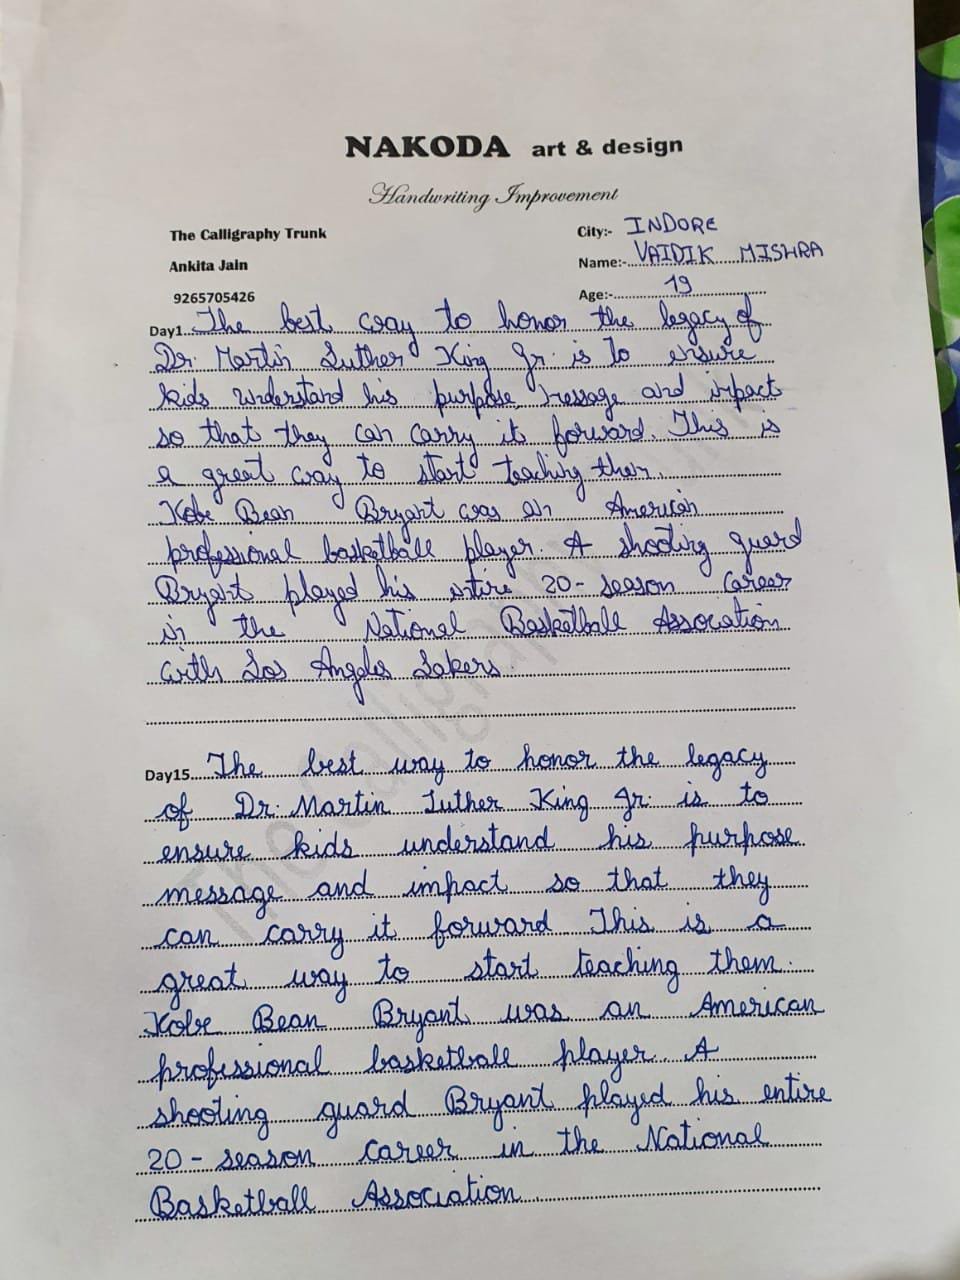 NAKODA art & design
Handwriting Improvement
The Calligraphy Trunk
City:- INDORE
Ankita Jain
Name:- VAIDIK MISHRA
9265705426
Age:- 19
Day1 The best way to honor the legacy of
Dr. Martin Luther King Jr. is to ensure
kids understand his purpose, message and impact
so that they can carry it forward. This is
a great way to start teaching them.
Kobe Bean Bryant was an American
professional basketball player. A shooting guard
Bryant played his entire 20-season career
in the National Basketball Assocation
with Los Angeles Lakers.
Day15 The best way to honor the legacy
of Dr. Martin Luther King Jr. is to
ensure kids understand his purpose
message and impact so that they
can carry it forward This is a
great way to start teaching them.
Kobe Bean Bryant was an American
professional basketball player. A
shooting guard Bryant played his entire
20-season career in the National
Basketball Association
The Calligraphy Trunk